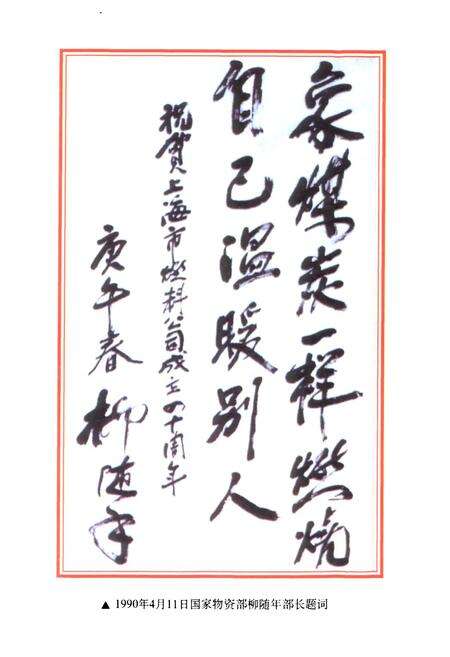 象煤炭一样燃烧
自己温暖别人
祝贺上海市燃料公司成立四十周年
庚午春 柳随年
▲ 1990年4月11日国家物资部柳随年部长题词